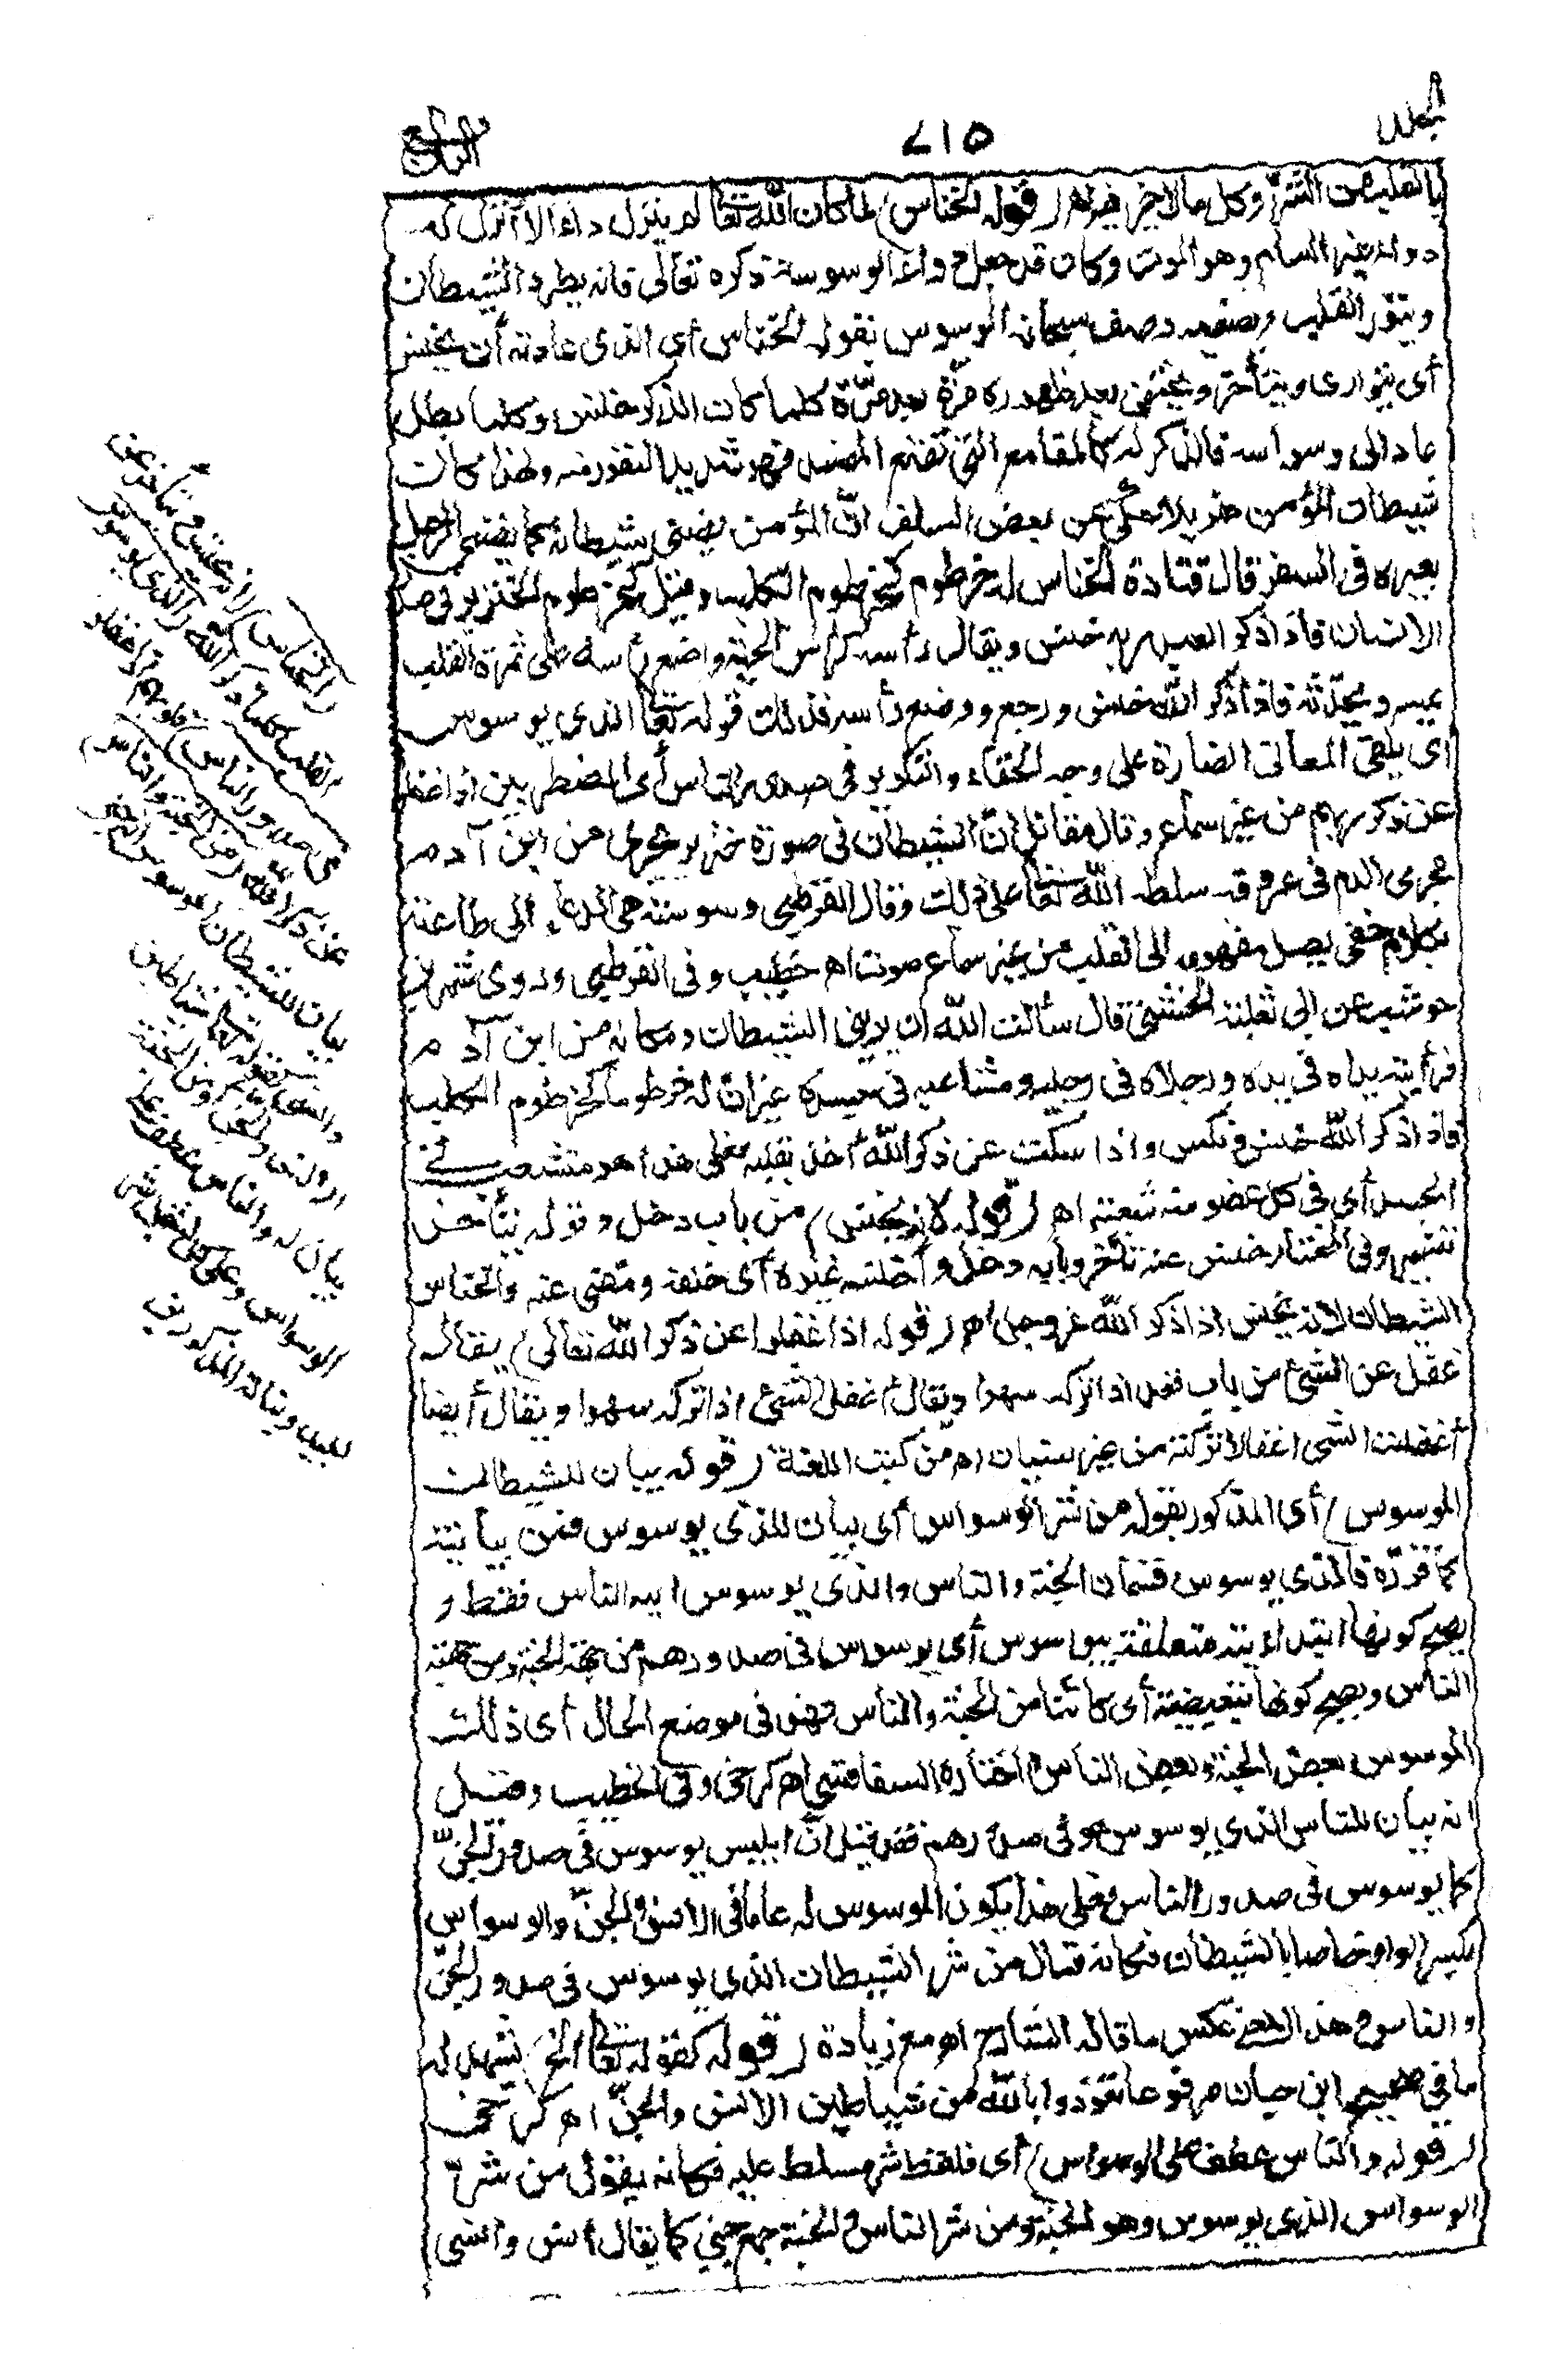 المجلد
٧١٥
الرابع
بالتعليق من الشر وكل ما لا خير فيه اهـ (قوله الخناس) لما كان الله تعالى لم ينزل داء الا أنزل له
دواء غير السام وهو الموت وكان قد جعل دواء الوسوسة ذكره تعالى فانه يطرد الشيطان
وينور القلب ويصفيه وصف سبحانه الموسوس بقوله الخناس أي الذي عادته أن يخنس
أي يتوارى ويتأخر ويختفي بعد ظهوره مرة بعد مرة كلما كان الذكر خنس وكلما بطل
عاد الى وسواسه فالذكر له كالمقامع التي تقمع المفسد فهو شديد النفور منه ولهذا كان
شيطان المؤمن هزيلا حكي عن بعض السلف انّ المؤمن يضني شيطانه كما يضني الرجل
بعيره في السفر قال قتادة الخناس له خرطوم كخرطوم الكلب وقيل كخرطوم الخنزير في صدر
الانسان فاذا ذكر العبد ربه خنس ويقال رأسه كرأس الحية واضع رأسه على ثمرة القلب
يمسه ويحدّثه فاذا ذكر الله خنس ورجع ووضع رأسه فذلك قوله تعالى الذي يوسوس
أي يلقي المعاني الضارة على وجه الخفاء والتكرير في صدور الناس أي المضطربين اذا غفلوا
عن ذكر ربهم من غير سماع وقال مقاتل انّ الشيطان في صورة خنزير يجري من ابن آدم
مجرى الدم في عروقه سلطه الله تعالى على ذلك وقال القرطبي وسوسته هي الدعاء الى طاعته
بكلام خفي يصل مفهومه الى القلب من غير سماع صوت اهـ خطيب وفي القرطبي وروى شهر بن
حوشب عن أبي ثعلبة الخشني قال سألت الله ان يريني الشيطان ومكانه من ابن آدم
فرأيته يداه في يده ورجلاه في رجليه ومشاعبه في جسده غير انّ له خرطوما كخرطوم الكلب
فاذا ذكر الله خنس ونكس واذا سكت عن ذكر الله أخذ بقلبه فعلى هذا هو متشعب في
الجسد أي في كل عضو منه شعبة اهـ (قوله لانه يخنس) من باب دخل وقوله يتأخر
تفسير وفي المختار خنس عنه تأخر وبابه دخل وأخنسه غيره أي خلفه ومضى عنه والخناس
الشيطان لانه يخنس اذا ذكر الله عز وجل اهـ (قوله اذا غفلوا عن ذكر الله تعالى) يقال
غفل عن الشيء من باب قعد اذا تركه سهوا ويقال أغفل الشيء اذا تركه سهوا ويقال أيضا
أغفلت الشيء اغفالا تركته من غير نسيان اهـ من كتب اللغة (قوله بيان للشيطان
الموسوس) أي المذكور بقوله من شر الوسواس أي بيان للذي يوسوس فمن بيانية
كما قرّره فالذي يوسوس قسمان الجنة والناس والذي يوسوس اليه الناس فقط و
يصح كونها ابتدائية متعلقة بيوسوس أي يوسوس في صدورهم من جهة الجنة ومن جهة
الناس ويصح كونها تبعيضية أي كائنا من الجنة والناس فهو في موضع الحال أي ذلك
الموسوس بعض الجنة وبعض الناس واختاره السفاقسي اهـ كرخي وفي الخطيب وقيل
انه بيان للناس الذي يوسوس هو في صدورهم فقد قيل انّ ابليس يوسوس في صدور الجنّ
كما يوسوس في صدور الناس فعلى هذا يكون الموسوس له عاما في الانس والجنّ والوسواس
بكسر الواو خاصا بالشيطان فكانه قال من شر الشيطان الذي يوسوس في صدور الجنّ
والناس وهذا المعنى عكس ما قاله الشارح اهـ مع زيادة (قوله كقوله تعالى الخ) يشهد له
ما في صحيح ابن حبان مرفوعا تعوّذوا بالله من شياطين الانس والجنّ اهـ كرخي
(قوله والناس عطف على الوسواس) أي فلفظ شر مسلط عليه فكانه يقول من شرّ
الوسواس الذي يوسوس وهو الجنة ومن شر الناس والجنة جمع جني كما يقال أنس وانسي
(الخناس) لانه يخنس ويتأخر عن
القلب كلما ذكر الله (الذي يوسوس
في صدور الناس) قلوبهم اذا غفلوا
عن ذكر الله (من الجنة والناس)
بيان للشيطان الموسوس انه جني
وانسي كقوله تعالى شياطين
الانس والجن أو من الجنة
بيان له والناس عطف على
الوسواس وعلى كل يشمل شر
لبيد وبناته المذكورين